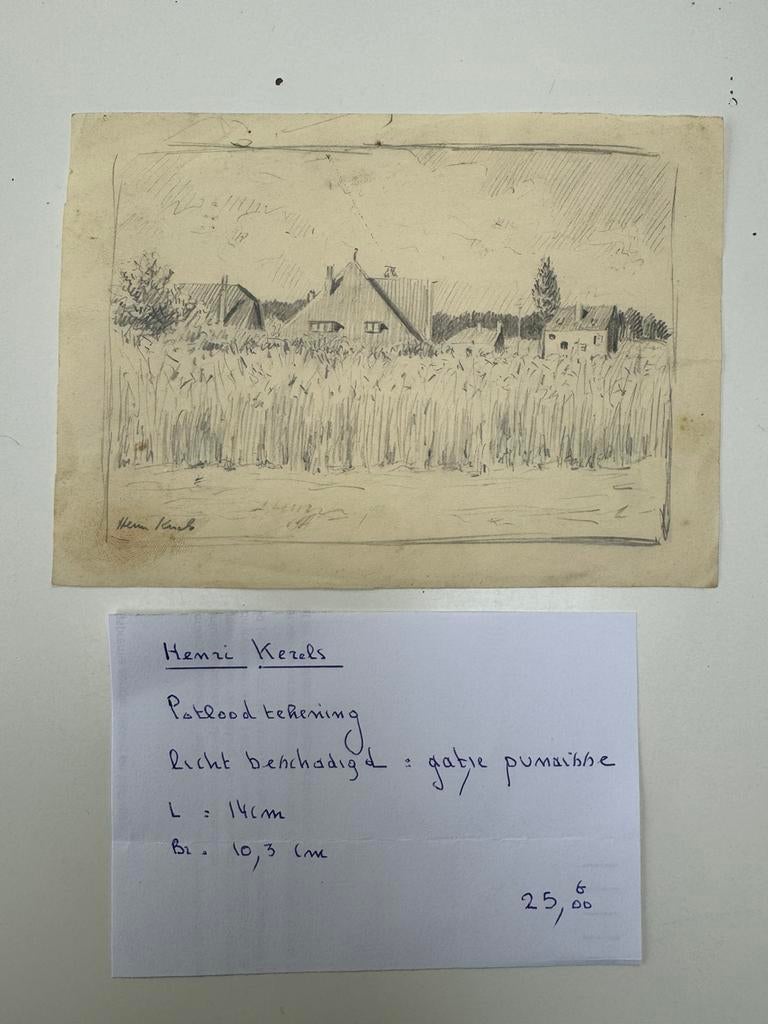 Henri Kerels
Henri Kerels
Potloodtekening
licht beschadigd = gatje punaisse
L = 14cm
Br. 10,3 cm
25,00 €